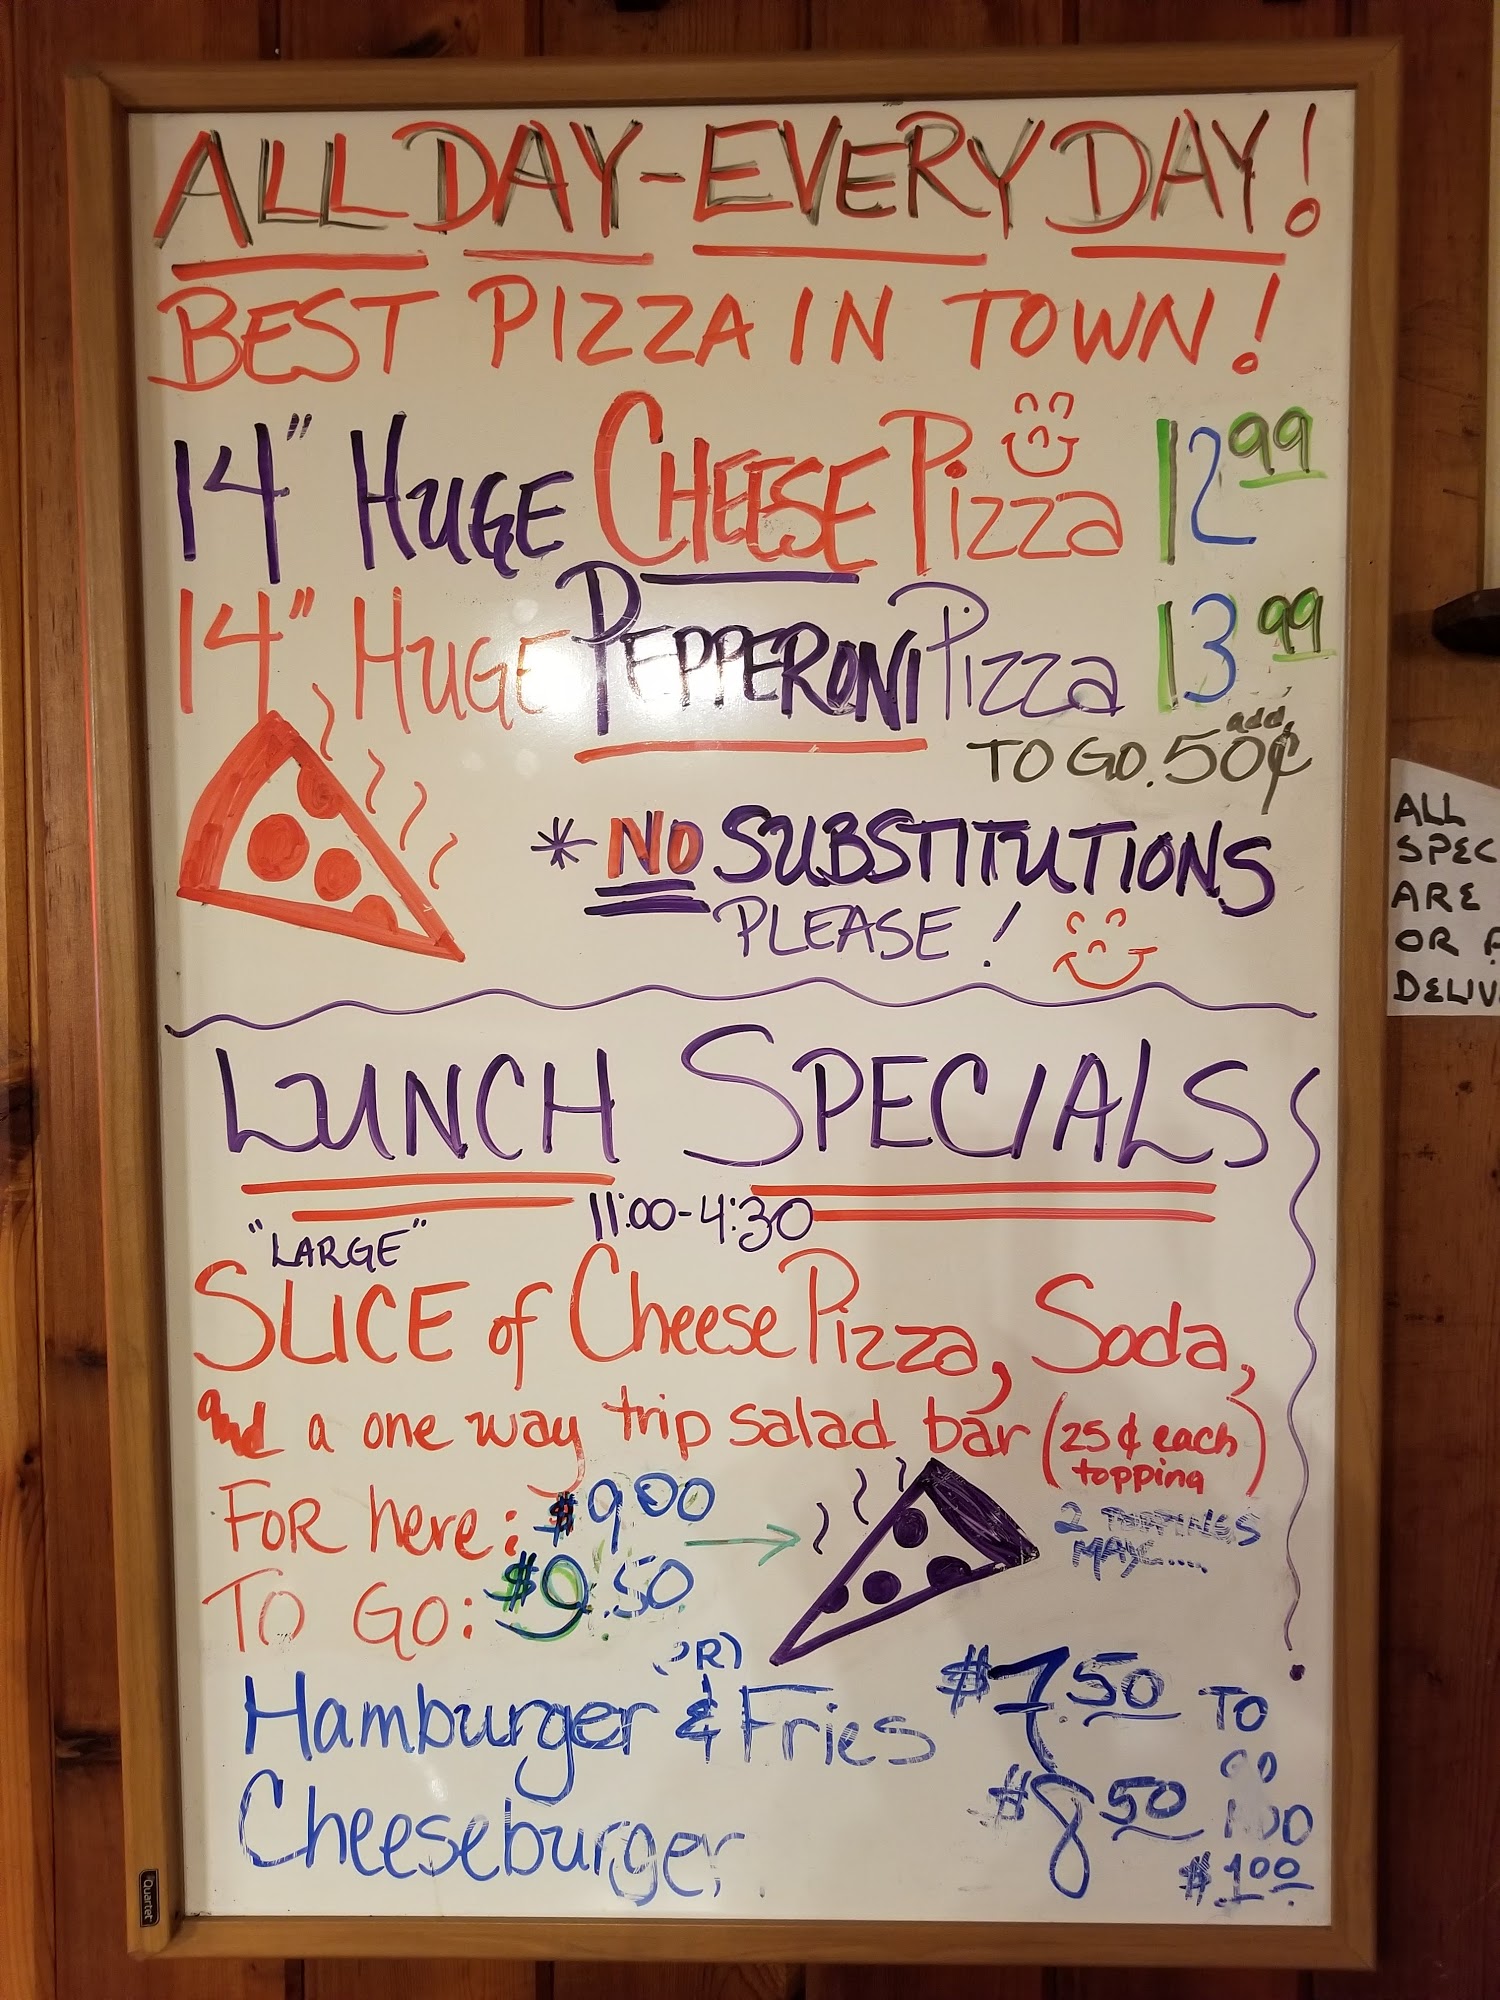 ALL DAY - EVERY DAY!
BEST PIZZA IN TOWN!
14" HUGE CHEESE Pizza 12 99
14" HUGE PEPPERONI Pizza 13 99
add
TO GO. 50¢
* NO SUBSTITUTIONS
PLEASE!
LUNCH SPECIALS
11:00-4:30
"LARGE"
SLICE of Cheese Pizza, Soda,
and a one way trip salad bar (25¢ each
topping)
2 TOPPINGS
MAX.....
FOR here: $9 00
TO GO: $9.50
(OR)
Hamburger & Fries $7.50 TO
GO
Cheeseburger $8 50
$1.00
Quartet
ALL
SPEC
ARE
OR
DELIV